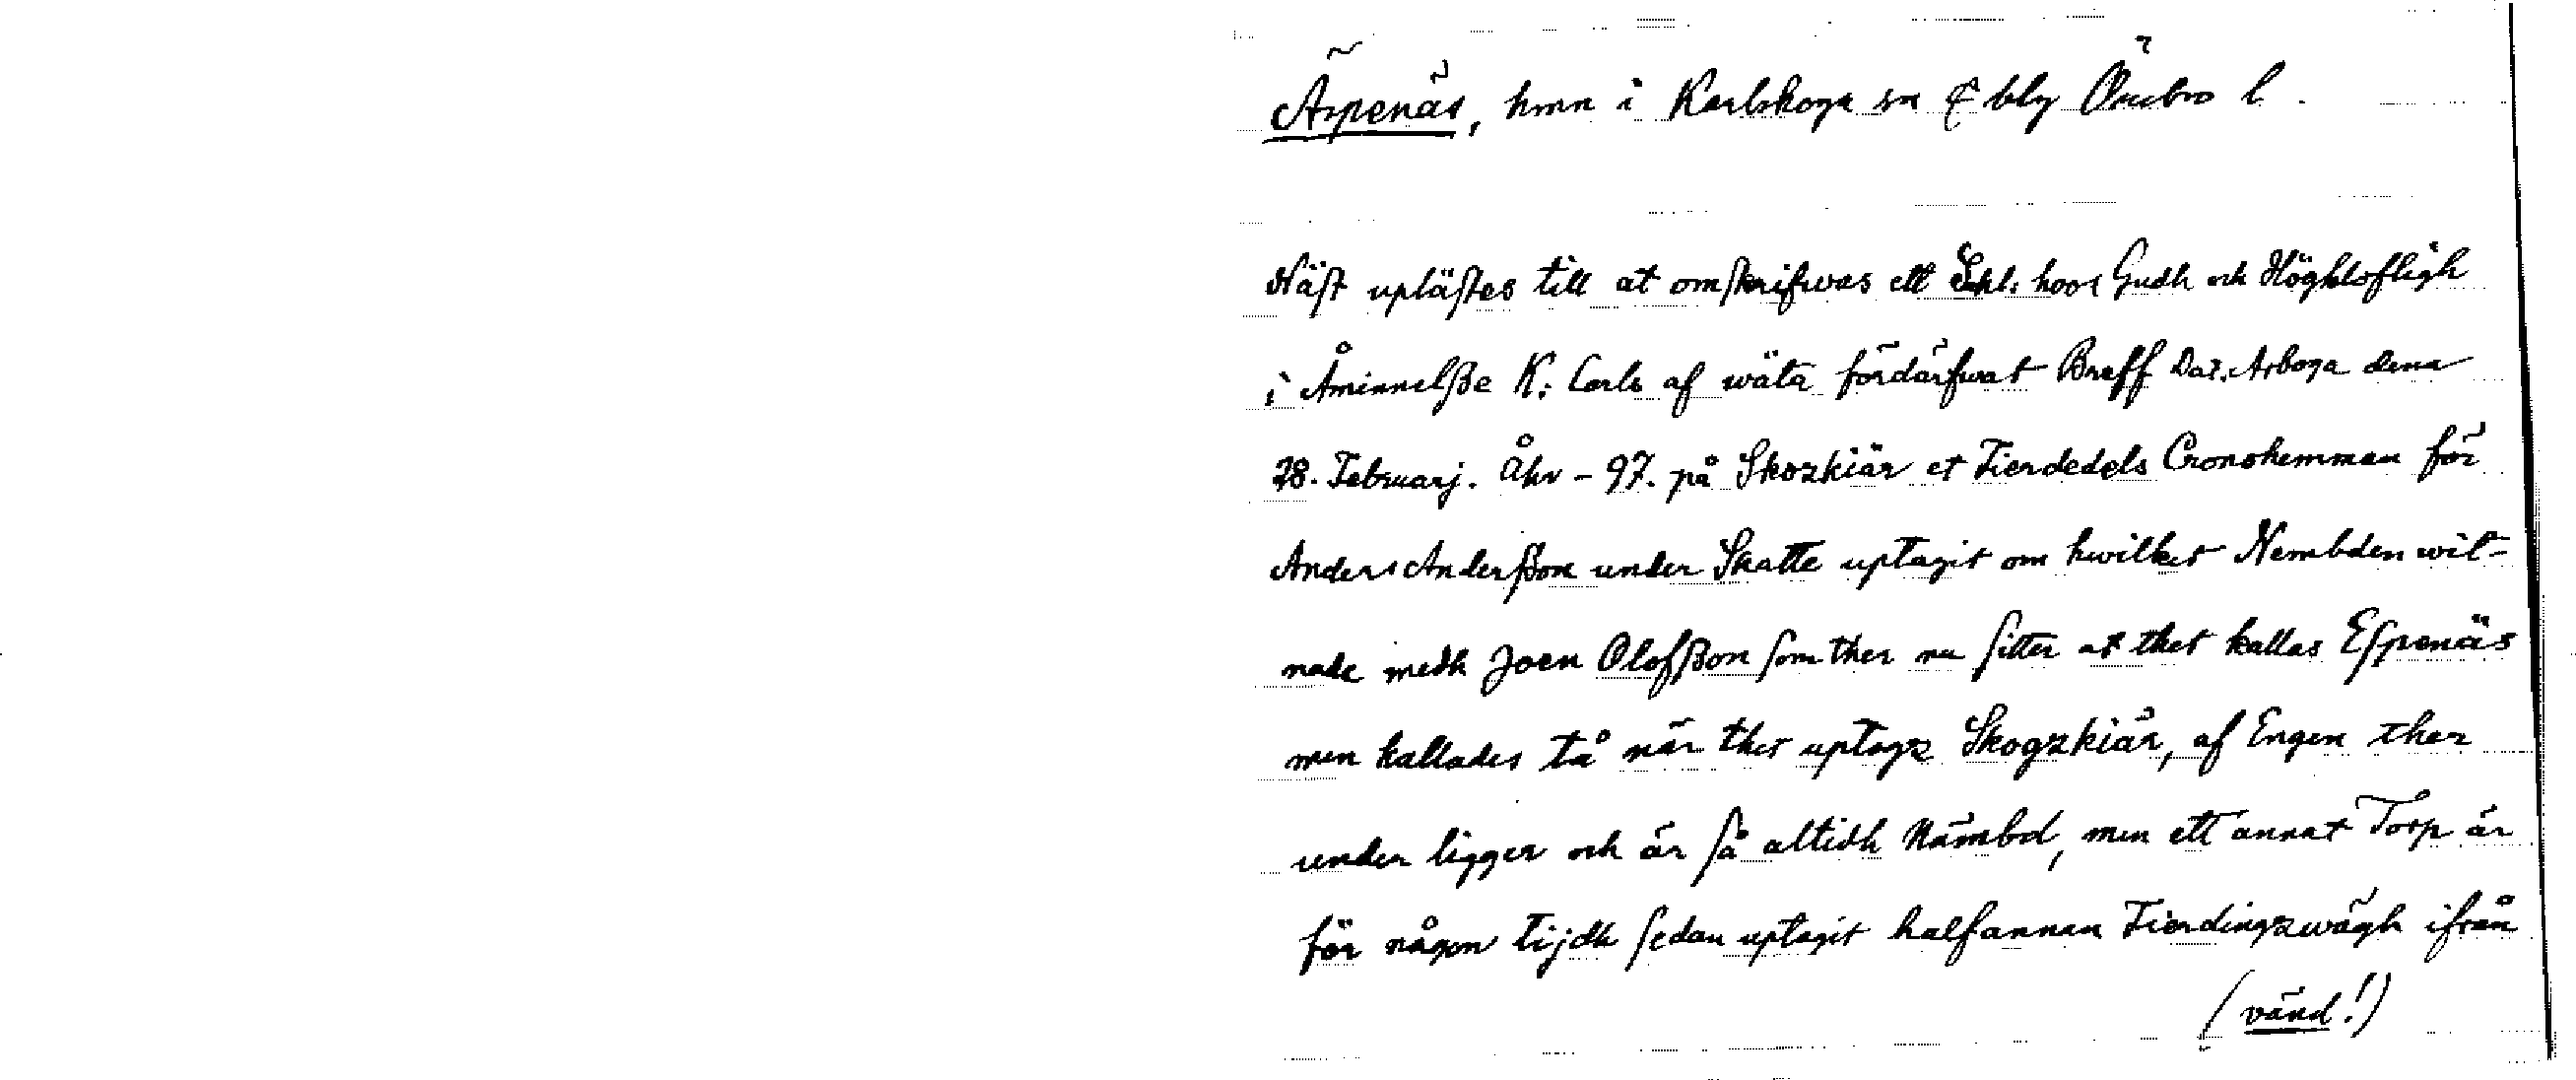 Äspenäs, hmn i Karlskoga sn & blg Örebro l.
Näst uplästes till at omskrifwas ett Sahl. hoos Gudh och Höghlofligh
i Åminnelße K: Carls af wäta fördärfwat Breff Dat. Arboga denn
28. Februarj. Åhr - 97. på Skozkiär et Fierdedels Cronohemman för
Anders Anderßon under Skatte uptagit om hwilket Nembden wit-
nade medh Joen Olofßon som ther nu sitter at thet kallas Espenäs
men kallades tå när thet uptogz Skogzkiär, af Engen ther
under ligger och är så altidh Nämbd, men ett annat Torp är
för någon tijdh sedan uptagit halfannan Fierdingzwägh ifrån
(vänd!)